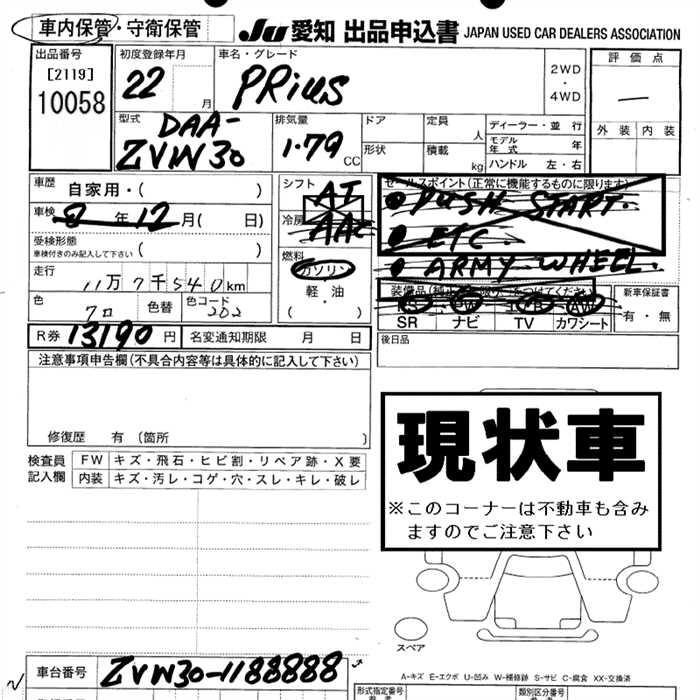 車内保管・守衛保管
JU 愛知 出品申込書 JAPAN USED CAR DEALERS ASSOCIATION
出品番号
[2119]
10058
初度登録年月
22 月
車名・グレード
PRius
2WD
・
4WD
評価点
—
外装 内装
型式
DAA-
ZVW30
排気量
1.79 CC
ドア
形状
定員 人
積載 kg
ディーラー・並行
モデル年式 年
ハンドル 左・右
車歴 自家用・( )
車検 年 12 月( 日)
受検形態
車検付きのみ記入して下さい ( )
走行 11万7千540km
色 色替 色コード
202
シフト
AT
冷房
AAC
燃料
ガソリン
・
軽・油
( )
セールスポイント(正常に機能するものに限ります)
PUSH START.
ETC
ARMY WHEEL.
PS PW AW
SR ナビ TV カワシート
新車保証書
有・無
R券 13190 円 名変通知期限 月 日
後日品
注意事項申告欄(不具合内容等は具体的に記入して下さい)
修復歴 有 (箇所 )
検査員
記入欄
FW キズ・飛石・ヒビ割・リペア跡・X要
内装 キズ・汚レ・コゲ・穴・スレ・キレ・破レ
現状車
※このコーナーは不動車も含み
ますのでご注意下さい
スペア
A-キズ E-エクボ U-凹み W-補修跡 S-サビ C-腐食 XX-交換済
車台番号 ZVW30-1188888
形式指定番号
類別区分番号